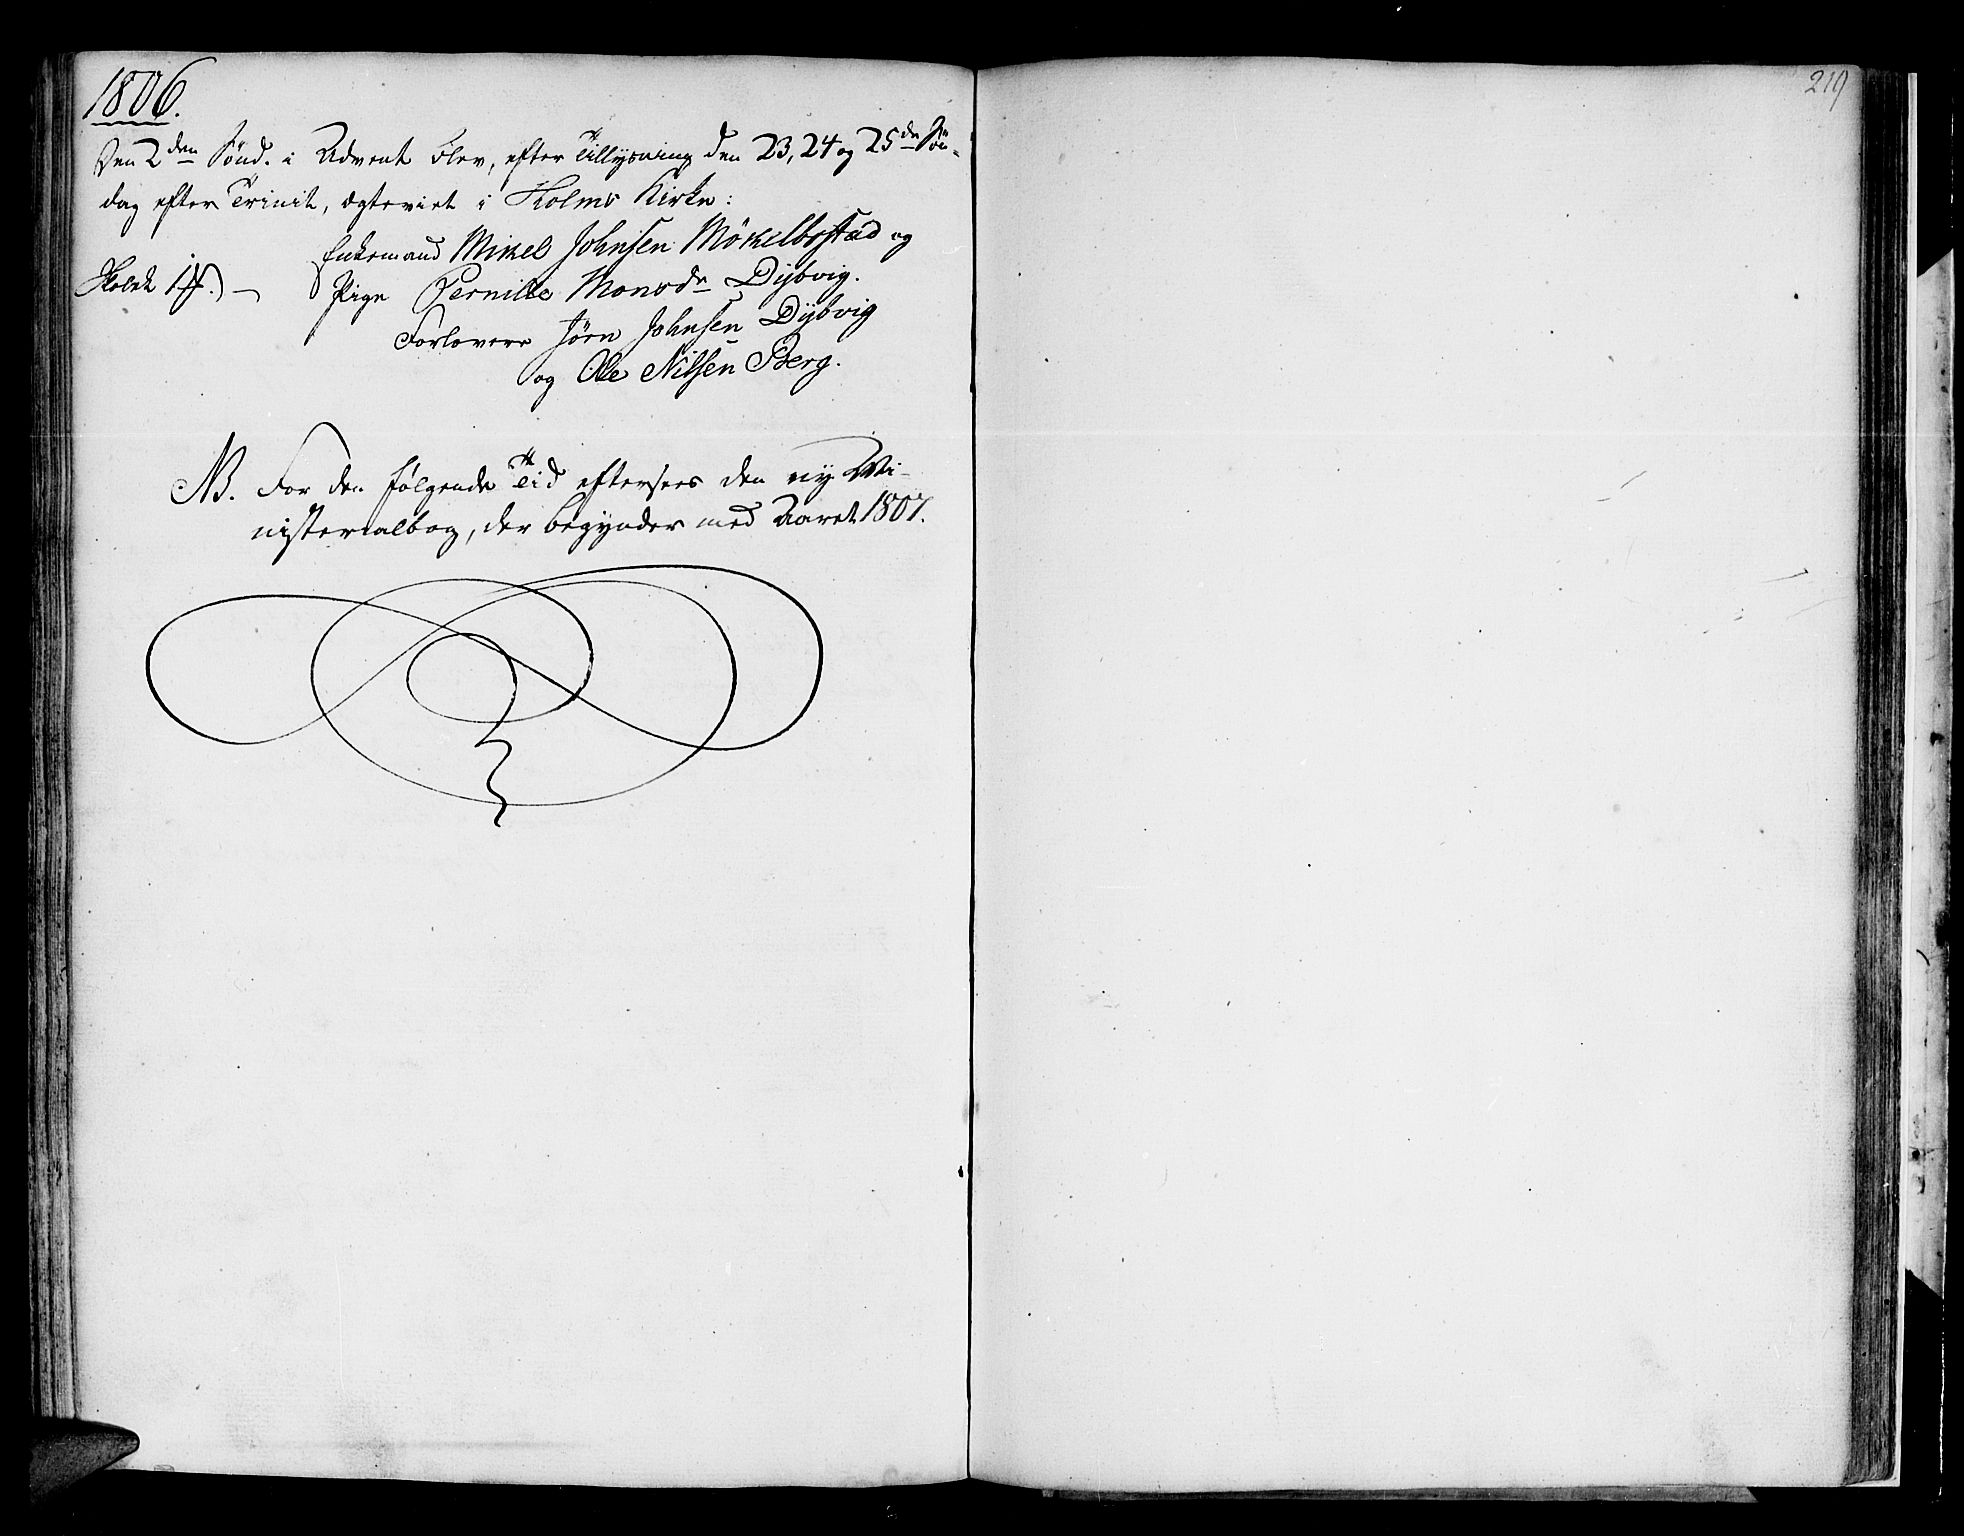 1806.
219
Den 2den Sønd. i Advent blev, efter Tillysning den 23, 24 og 25de Søn-
dag efter Trinit, ægteviet i Holms Kirke:
Enkemand Mikel Johnsen Mökelbostad og
Skolek 1
Pige Pernille Monsdr Dybvig.
Forlovere Jörn Johnsen Dybvig
og Ole Nilsen Berg.
NB. For den følgende Tid eftersees den ny Mi-
nisterialbog, der begynder med Aaret 1807.